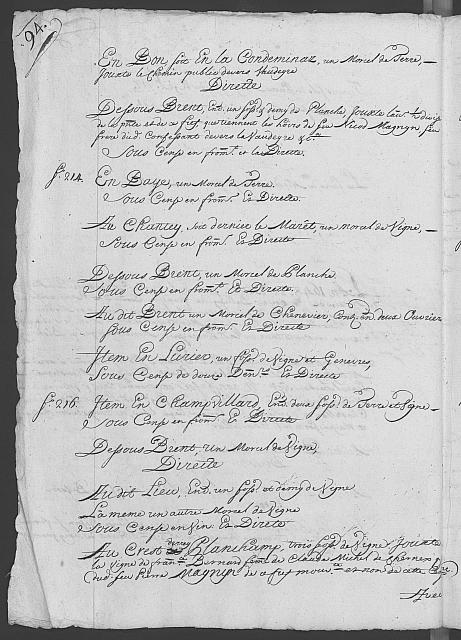 94.
En Bon soit En la Condeminaz, un Morcel de Terre,
Jouxte le chemin public devers Vaudeyre
Directe
Dessous Brent, Ent. un foss. & demy de Planche, Jouxte
de la que tiennent les hoirs de feu Nicod Magnyn, feu
frere dud. Confessant devers le Vaudeyre &c.
Sous Cense en from.t et la Directe.
f.o 214. En Baye, un Morcel de Terre.
Sous Cense en from.t Et Directe.
Au Chantey, soit dernier le Maret, un morcel de Vigne,
Sous Cense en from.t Et Directe
Dessous Brent, un Morcel de Planche
Sous Cense en from.t Et Directe.
Au dit Brent un Morcel de Chenevier, Cont. en deux Ouvrier
Sous Cense en from.t Et Directe
Item En Lurier, un foss. de Vigne et Genevres,
Sous Cense de douze Den.rs Et Directe
f.o 216. Item En Champvillard, Ent. deux foss. de Terre et Vigne
Sous Cense en from.t Et Directe
Dessous Brent, un Morcel de Vigne,
Directe
Au dit Lieu, Ent. un foss. et demy de Vigne
La meme un autre Morcel de Vigne
Sous Cense en Vin Et Directe
Au Crest derrey Blanchamp, trois foss. de Vigne, Jouxte
la Vigne de fran. Bernard fame de Claude Michel de Chernex
(dud. feu Pierre Magnyn de a fief mouv. et non de cette
Avec